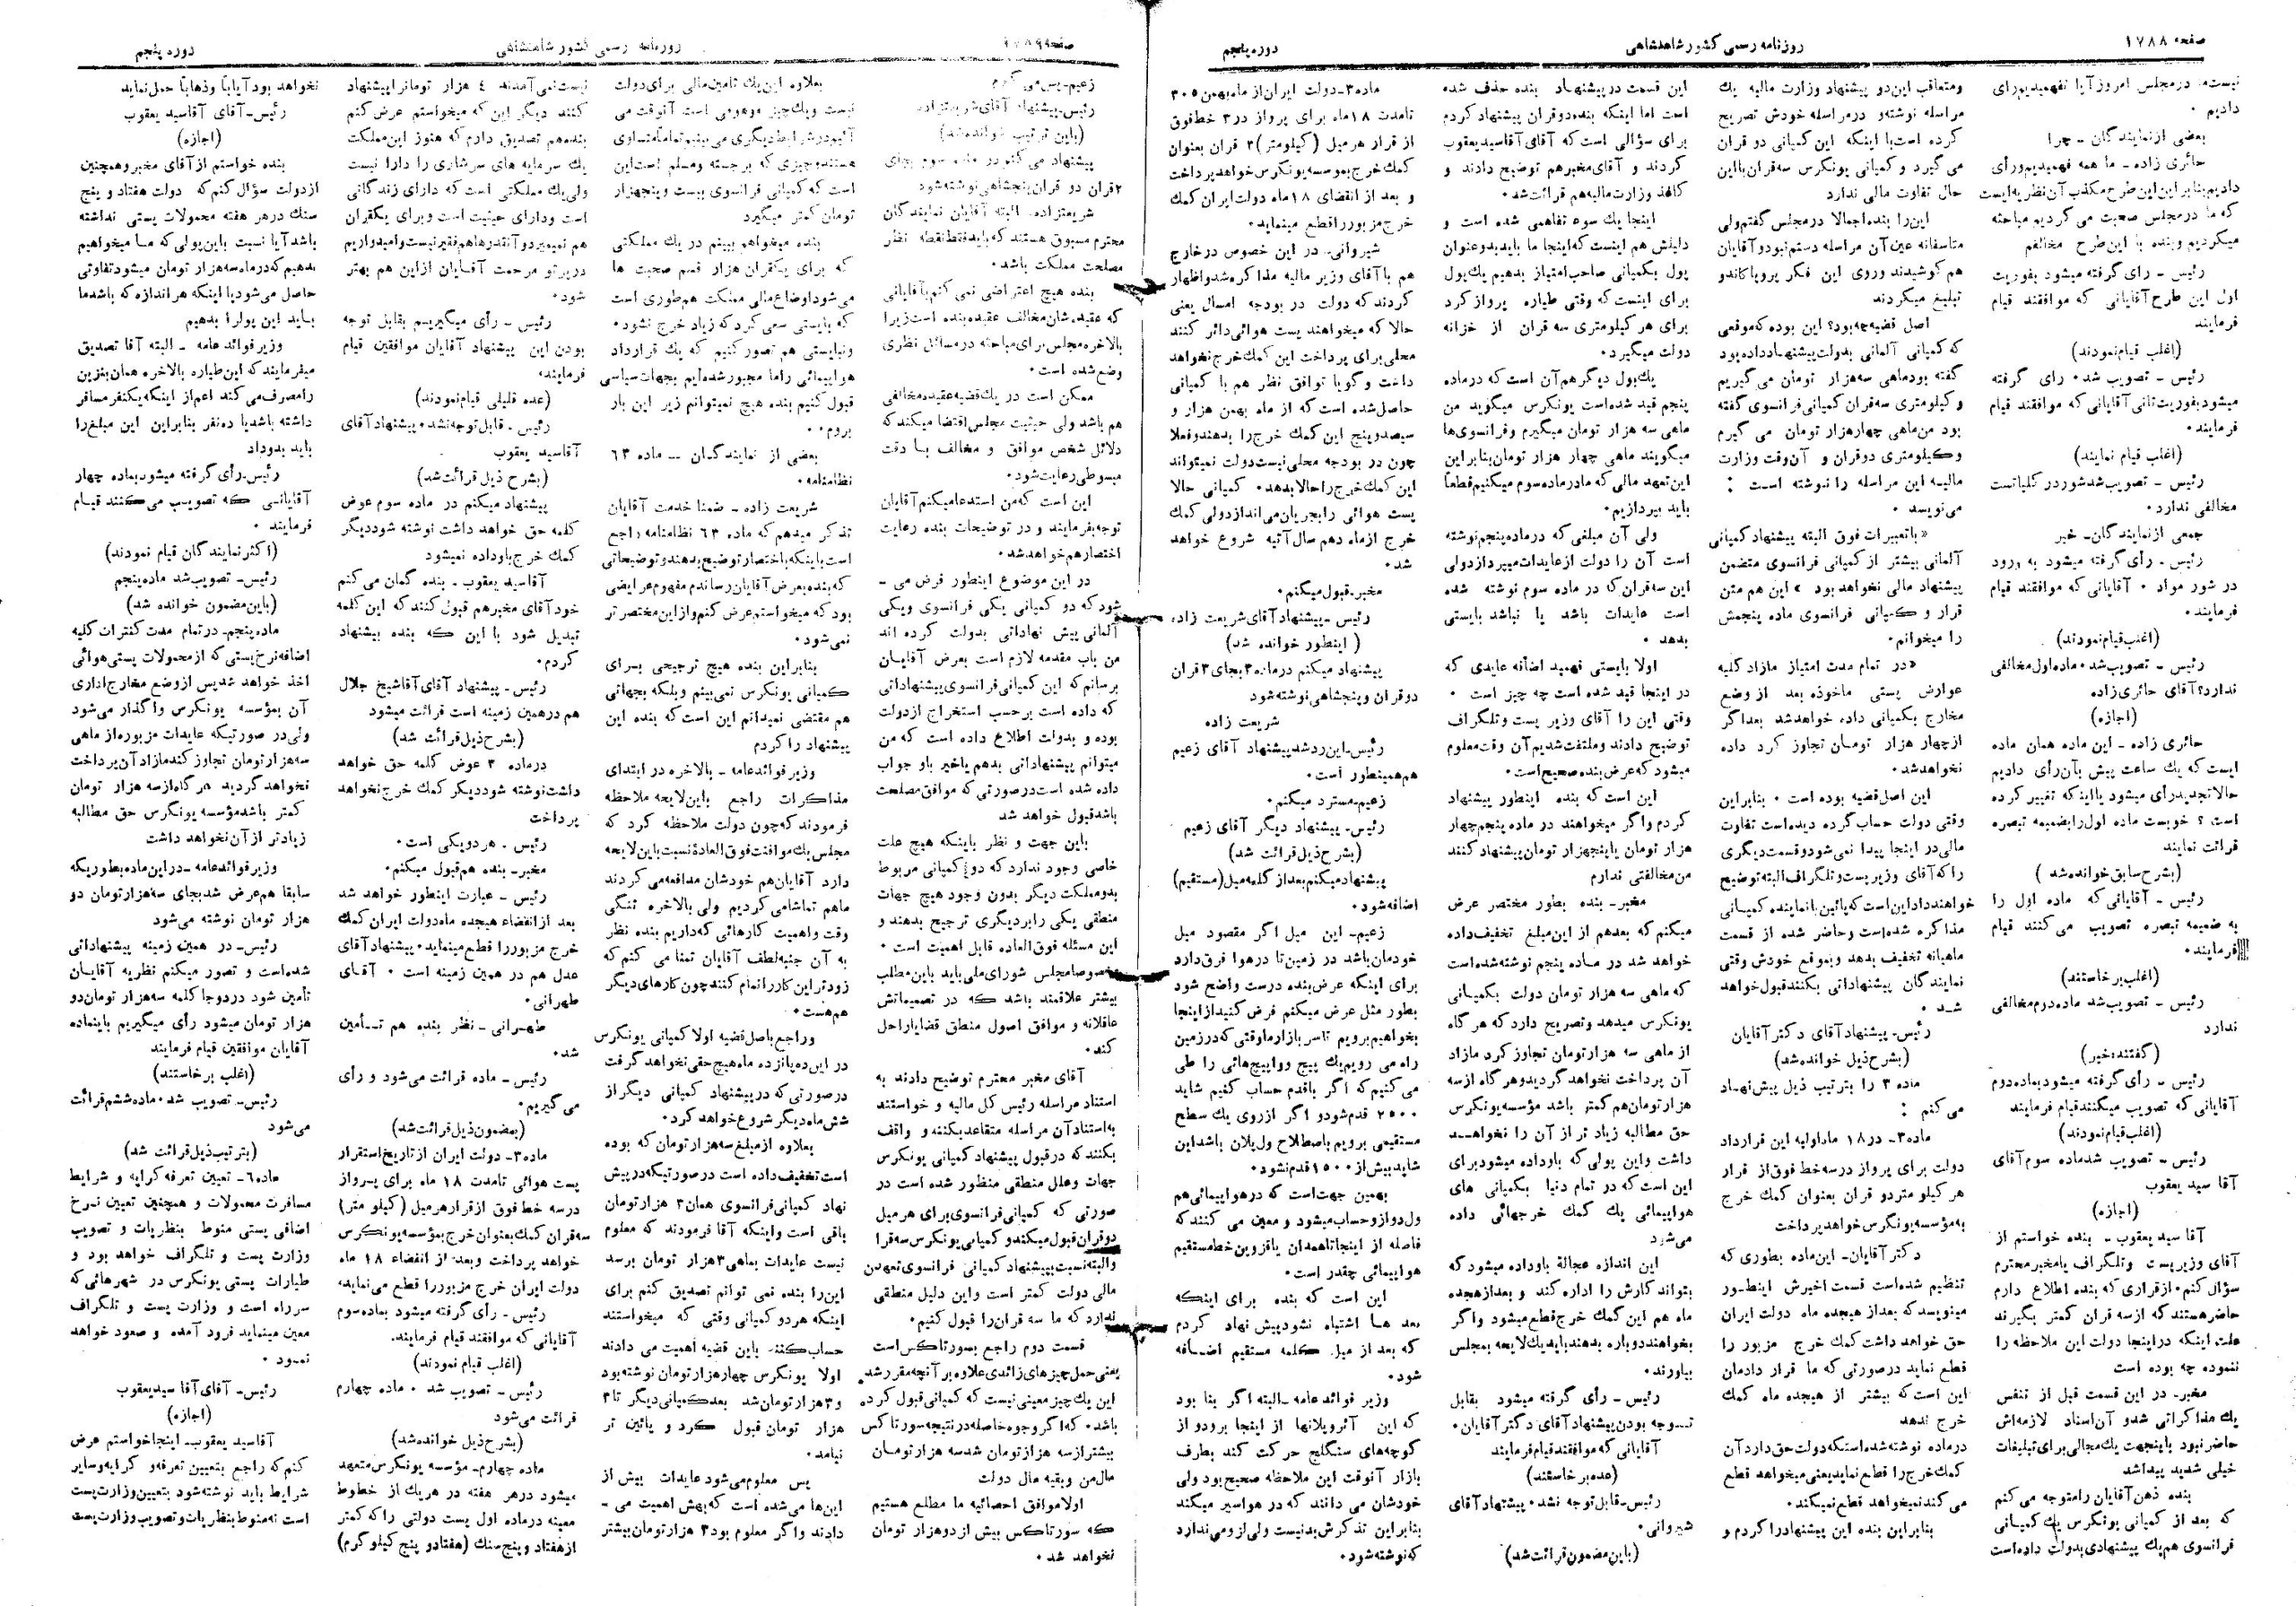 صفحه ۱۷۸۸
روزنامه رسمی کشور شاهنشاهی
دوره پنجم
نیست. در مجلس امروز آیا نفهمیدیم رأی
دادیم.
بعضی از نمایندگان ـ چرا
حائری زاده ـ ما همه فهمیدیم و رأی
دادیم بنابراین این طرح مکذب آن نظریه ایست
که ما در مجلس صحبت می کردیم مباحثه
میکردیم و بنده با این طرح مخالفم
رئیس ـ رأی گرفته میشود بفوریت
اول این طرح آقایانی که موافقند قیام
فرمایند
(اغلب قیام نمودند)
رئیس ـ تصویب شد. رای گرفته
میشود بفوریت ثانی آقایانی که موافقند قیام
فرمایند.
(اغلب قیام نمایند)
رئیس ـ تصویب شد شور در کلیاتست
مخالفی ندارد.
جمعی از نمایندگان ـ خیر
رئیس ـ رأی گرفته میشود به ورود
در شور مواد . آقایانی که موافقند قیام
فرمایند.
(اغلب قیام نمودند)
رئیس ـ تصویب شد. ماده اول مخالفی
ندارد؟ آقای حائری زاده
(اجازه)
حائری زاده ـ این ماده همان ماده
ایست که یك ساعت پیش بآن رأی دادیم
حالا تجدید رأی میشود یا اینکه تغییر کرده
است ؟ خوبست ماده اول را بضمیمه تبصره
قرائت نمایند
(بشرح سابق خوانده شد)
رئیس ـ آقایانی که ماده اول را
به ضمیمه تبصره تصویب می کنند قیام
فرمایند.
(اغلب برخاستند)
رئیس ـ تصویب شد ماده دوم مخالفی
ندارد
(گفتند خیر)
رئیس ـ رأی گرفته میشود بماده دوم
آقایانی که تصویب میکنند قیام فرمایند
(اغلب قیام نمودند)
رئیس ـ تصویب شد ماده سوم آقای
آقا سید یعقوب
(اجازه)
آقا سید یعقوب ـ بنده خواستم از
آقای وزیر پست و تلگراف یا مخبر محترم
سؤال کنم . از قراری که بنده اطلاع دارم
حاضر هستند که از سه قران کمتر بگیرند
علت اینکه در اینجا دولت این ملاحظه را
ننموده چه بوده است
مخبر ـ در این قسمت قبل از تنفس
یك مذاکراتی شد و آن اسناد لازمه اش
حاضر نبود باینجهت یك مجالی برای تبلیغات
خیلی شدید پیدا شد
بنده ذهن آقایان را متوجه می کنم
که بعد از کمپانی یونکرس یك کمپانی
فرانسوی هم یك پیشنهادی بدولت داده است
ومتعاقب این دو پیشنهاد وزارت مالیه یك
مراسله نوشته و در مراسله خودش تصریح
کرده است با اینکه این کمپانی دو قران
می گیرد و کمپانی یونکرس سه قران با این
حال تفاوت مالی ندارد
این را بنده اجمالا در مجلس گفتم ولی
متاسفانه عین آن مراسله دستم نبود و آقایان
هم کوشیدند و روی این فکر پروپاکاندو
تبلیغ میکردند
اصل قضیه چه بود؟ این بوده که موقعی
که کمپانی آلمانی بدولت پیشنهاد داده بود
گفته بود ماهی سه هزار تومان می گیریم
و کیلومتری سه قران کمپانی فرانسوی گفته
بود من ماهی چهار هزار تومان می گیرم
و کیلومتری دوقران و آن وقت وزارت
مالیه این مراسله را نوشته است :
می نویسد .
« باتعبیرات فوق البته پیشنهاد کمپانی
آلمانی بیشتر از کمپانی فرانسوی متضمن
پیشنهاد مالی نخواهد بود » این هم متن
قرار و کمپانی فرانسوی ماده پنجمش
را میخوانم.
«در تمام مدت امتیاز مازاد کلیه
عوارض پستی ماخوذه بعد از وضع
مخارج بکمپانی داده خواهد شد بعد اگر
از چهار هزار تومان تجاوز کرد داده
نخواهد شد.
این اصل قضیه بوده است . بنابراین
وقتی دولت حساب کرده دیده است تفاوت
مالی در اینجا پیدا نمی شود و قسمت دیگری
را که آقای وزیر پست و تلگراف البته توضیح
خواهند داد این است که پائین با نماینده کمپانی
مذاکره شده است و حاضر شده از قسمت
ماهیانه تخفیف بدهد و بموقع خودش وقتی
نمایندگان پیشنهاداتی بکنند قبول خواهد
شد .
رئیس ـ پیشنهاد آقای دکتر آقایان
(بشرح ذیل خوانده شد)
ماده ۳ را بترتیب ذیل پیش نهاد
می کنم :
ماده ۳ ـ در ۱۸ ماه اولیه این قرارداد
دولت برای پرواز در سه خط فوق از قرار
هر کیلو متر دو قران بعنوان کمك خرج
به مؤسسه یونکرس خواهد پرداخت
دکتر آقایان ـ این ماده بطوری که
تنظیم شده است قسمت اخیرش اینطور
مینویسد که بعد از هیجده ماه دولت ایران
حق خواهد داشت کمك خرج مزبور را
قطع نماید در صورتی که ما قرار دادمان
این است که بیشتر از هیجده ماه کمك
خرج ندهد
در ماده نوشته شده است که دولت حق دارد آن
کمك خرج را قطع نماید یعنی میخواهد قطع
می کند نمیخواهد قطع نمیکند.
بنابراین بنده این پیشنهاد را کردم و
این قسمت در پیشنهاد بنده حذف شده
است اما اینکه بنده دوقران پیشنهاد کردم
برای سؤالی است که آقای آقاسید یعقوب
کردند و آقای مخبر هم توضیح دادند و
کاغذ وزارت مالیه هم قرائت شد.
اینجا یك سوء تفاهمی شده است و
دلیلش هم اینست که اینجا ما باید بدو عنوان
پول بکمپانی صاحب امتیاز بدهیم یك پول
برای اینست که وقتی طیاره پرواز کرد
برای هر کیلومتری سه قران از خزانه
دولت میگیرد.
یك پول دیگر هم آن است که در ماده
پنجم قید شده است یونکرس میگوید من
ماهی سه هزار تومان میگیرم و فرانسوی ها
میگویند ماهی چهار هزار تومان بنابراین
این تعهد مالی که ما در ماده سوم میکنیم قطعاً
باید بپردازیم.
ولی آن مبلغی که در ماده پنجم نوشته
است آن را دولت از عایدات میپردازد ولی
این سه قران که در ماده سوم نوشته شده
است عایدات باشد یا نباشد بایستی
بدهد .
اولا بایستی فهمید اضافه عایدی که
در اینجا قید شده است چه چیز است .
وقتی این را آقای وزیر پست و تلگراف
توضیح دادند و ملتفت شدیم آن وقت معلوم
میشود که عرض بنده صحیح است.
این است که بنده اینطور پیشنهاد
کردم و اگر میخواهند در ماده پنجم چهار
هزار تومان یا پنجهزار تومان پیشنهاد کنند
من مخالفتی ندارم
مخبر ـ بنده بطور مختصر عرض
میکنم که بعد هم از این مبلغ تخفیف داده
خواهد شد در ماده پنجم نوشته شده است
که ماهی سه هزار تومان دولت بکمپانی
یونکرس میدهد و تصریح دارد که هر گاه
از ماهی سه هزار تومان تجاوز کرد مازاد
آن پرداخت نخواهد گردید و هر گاه از سه
هزار تومان هم کمتر باشد مؤسسه یونکرس
حق مطالبه زیاد تر از آن را نخواهد
داشت و این پولی که باو داده میشود برای
این است که در تمام دنیا بکمپانی های
هواپیمائی یك کمك خرجهائی داده
می شود
این اندازه عجالة باو داده میشود که
بتواند کارش را اداره کند و بعد از هیجده
ماه هم این کمك خرج قطع میشود و اگر
بخواهند دوباره بدهند باید یك لایحه بمجلس
بیاورند.
رئیس ـ رأی گرفته میشود بقابل
توجه بودن پیشنهاد آقای دکتر آقایان.
آقایانی که موافقند قیام فرمایند
(عده برخاستند)
رئیس ـ قابل توجه نشد . پیشنهاد آقای
شیروانی .
(باین مضمون قرائت شد)
ماده ۳ ـ دولت ایران از ماه بهمن ۳۰۵
تامدت ۱۸ ماه برای پرواز در ۳ خط فوق
از قرار هر میل (کیلومتر) ۲ قران بعنوان
کمك خرج بموسسه یونکرس خواهد پرداخت
و بعد از انقضای ۱۸ ماه دولت ایران کمك
خرج مزبور را قطع مینماید.
شیروانی ـ در این خصوص در خارج
هم با آقای وزیر مالیه مذاکره شد و اظهار
کردند که دولت در بودجه امسال یعنی
حالا که میخواهند پست هوائی دائر کنند
محلی برای پرداخت این کمك خرج نخواهد
داشت و گویا توافق نظر هم با کمپانی
حاصل شده است که از ماه بهمن هزار و
سیصد و پنج این کمك خرج را بدهند و فعلا
چون در بودجه محلی نیست دولت نمیتواند
این کمك خرج را حالا بدهد . کمپانی حالا
پست هوائی را بجریان می اندازد ولی کمك
خرج از ماه دهم سال آتیه شروع خواهد
شد .
مخبر ـ قبول میکنم .
رئیس ـ پیشنهاد آقای شریعت زاده
( اینطور خوانده شد)
پیشنهاد میکنم در ماده ۳ بجای ۳ قران
دوقران و پنجشاهی نوشته شود
شریعت زاده
رئیس ـ این رد شد پیشنهاد آقای زعیم
هم همینطور است.
زعیم ـ مسترد میکنم .
رئیس ـ پیشنهاد دیگر آقای زعیم
(بشرح ذیل قرائت شد)
پیشنهاد میکنم بعد از کلمه میل (مستقیم)
اضافه شود.
زعیم ـ این میل اگر مقصود میل
خودمان باشد در زمین تا در هوا فرق دارد
برای اینکه عرض بنده درست واضح شود
بطور مثل عرض میکنم فرض کنید از اینجا
بخواهیم برویم تا سر بازار ما وقتی که در زمین
راه می رویم یك پیچ و واپیچ هائی را طی
می کنیم که اگر باقدم حساب کنیم شاید
۲۵۰۰ قدم شود و اگر از روی یك سطح
مستقیمی برویم باصطلاح ول پلان باشد این
شاید بیش از ۱۵۰۰ قدم نشود.
بهمین جهت است که در هواپیمائی هم
ول دوازو حساب میشود و معین می کنند که
فاصله از اینجا تا همدان یا قزوین خط مستقیم
هواپیمائی چقدر است.
این است که بنده برای اینکه
بعد ها اشتباه نشود پیش نهاد کردم
که بعد از میل کلمه مستقیم اضافه
شود.
وزیر فوائد عامه ـ البته اگر بنا بود
که این آئروپلانها از اینجا برود و از
کوچه های سنگلج حرکت کند بطرف
بازار آنوقت این ملاحظه صحیح بود ولی
خودشان می دانند که در هوا سیر میکند
بنابراین تذکرش بد نیست ولی لزومی ندارد
که نوشته شود.
صفحه ۱۷۸۹
روزنامه رسمی کشور شاهنشاهی
دوره پنجم
زعیم ـ پس می گیرم
رئیس ـ پیشنهاد آقای شریعتزاده
(باین ترتیب خوانده شد)
پیشنهاد می کنم در ماده سوم بجای
۲ قران دو قران پنجشاهی نوشته شود
شریعتزاده ـ البته آقایان نمایندگان
محترم مسبوق هستند که باید فقط نقطه نظر
مصلحت مملکت باشد .
بنده هیچ اعتراضی نمی کنم بآقایانی
که عقیده شان مخالف عقیده بنده است زیرا
بالاخره مجلس برای مباحثه در مسائل نظری
وضع شده است .
ممکن است در یك قضیه عقیده مخالفی
هم باشد ولی حیثیت مجلس اقتضا میکند که
دلائل شخص موافق و مخالف با دقت
مبسوطی رعایت شود.
این است که من استدعا میکنم آقایان
توجه بفرمایند و در توضیحات بنده رعایت
اختصار هم خواهد شد .
در این موضوع اینطور فرض می ـ
شود که دو کمپانی یکی فرانسوی و یکی
آلمانی پیش نهاداتی بدولت کرده اند
من باب مقدمه لازم است بعرض آقایان
برسانم که این کمپانی فرانسوی پیشنهاداتی
که داده است برحسب استخراج از دولت
بوده و بدولت اطلاع داده است که من
میتوانم پیشنهاداتی بدهم یا خیر باو جواب
داده شده است در صورتی که موافق مصلحت
باشد قبول خواهد شد
باین جهت و نظر باینکه هیچ علت
خاصی وجود ندارد که دو کمپانی مربوط
بدو مملکت دیگر بدون وجود هیچ جهات
منطقی یکی را بر دیگری ترجیح بدهند و
این مسئله فوق العاده قابل اهمیت است .
خصوصا مجلس شورای ملی باید باین مطلب
بیشتر علاقمند باشد که در تصمیماتش
عاقلانه و موافق اصول منطق قضایا را حل
کند .
آقای مخبر محترم توضیح دادند به
استناد مراسله رئیس کل مالیه و خواستند
به استناد آن مراسله متقاعد بکنند و واقف
بکنند که در قبول پیشنهاد کمپانی یونکرس
جهات و علل منطقی منظور شده است در
صورتی که کمپانی فرانسوی برای هر میل
دوقران قبول میکند و کمپانی یونکرس سه قرا
والبته نسبت بپیشنهاد کمپانی فرانسوی تعهدی
مالی دولت کمتر است و این دلیل منطقی
ندارد که ما سه قران را قبول کنیم.
قسمت دوم راجع بسورتاکس است
یعنی حمل چیزهای زائدی علاوه بر آنچه مقرر شد
این یك چیز معینی نیست که کمپانی قبول کرده
باشد . که اگر وجوه حاصله در نتیجه سورتاکس
بیشتر از سه هزار تومان شد سه هزار تومان
مال من و بقیه مال دولت
اولا موافق احصائیه ما مطلع هستیم
که سورتاکس بیش از دو هزار تومان
نخواهد شد .
بعلاوه این یك تامین مالی برای دولت
نیست و یك چیز موهومی است آنوقت می
آئیم در شرایط دیگری می بینیم تماما متساوی
هستند و چیزی که برجسته و مسلم است این
است که کمپانی فرانسوی بیست و پنجهزار
تومان کمتر میگیرد
بنده میخواهم ببینم در یك مملکتی
که برای یکقران هزار قسم صحبت ها
می شود اوضاع مالی مملکت هم طوری است
که بایستی سعی کرد که زیاد خرج نشود .
و نبایستی هم تصور کنیم که یك قرارداد
هواپیمائی را ما مجبور شده ایم بجهات سیاسی
قبول کنیم بنده هیچ نمیتوانم زیر این بار
بروم .
بعضی از نمایندگان ـ ماده ۶۳
نظامنامه .
شریعت زاده ـ ضمنا خدمت آقایان
تذکر میدهم که ماده ۶۳ نظامنامه راجع
است باینکه باختصار توضیح بدهند و توضیحاتی
که بنده بعرض آقایان رساندم مفهوم عرایضی
بود که میخواستم عرض کنم و از این مختصر تر
نمی شود.
بنابراین بنده هیچ ترجیحی برای
کمپانی یونکرس نمی بینم و بلکه بجهاتی
هم مقتضی نمیدانم این است که بنده این
پیشنهاد را کردم
وزیر فوائد عامه ـ بالاخره در ابتدای
مذاکرات راجع باین لایحه ملاحظه
فرمودند که چون دولت ملاحظه کرد که
مجلس یك موافقت فوق العادة نسبت باین لایحه
دارد آقایان هم خودشان مدافعه می کردند
ماهم تماشا می کردیم ولی بالاخره تنگی
وقت و اهمیت کارهائی که داریم بنده نظر
به آن جنبه لطف آقایان تمنا می کنم که
زودتر این کار را تمام کنند چون کارهای دیگر
هم هست.
و راجع باصل قضیه اولا کمپانی یونکرس
در این ده پانزده ماه هیچ حقی نخواهد گرفت
در صورتی که در پیشنهاد کمپانی دیگر از
شش ماه دیگر شروع خواهد کرد.
بعلاوه از مبلغ سه هزار تومان که بوده
است تخفیف داده است در صورتیکه در پیش
نهاد کمپانی فرانسوی همان ۳ هزار تومان
باقی است و اینکه آقا فرمودند که معلوم
نیست عایدات بماهی ۳ هزار تومان برسد
این را بنده نمی توانم تصدیق کنم برای
اینکه هر دو کمپانی وقتی که میخواستند
حساب کنند باین قضیه اهمیت می دادند
اولا یونکرس چهار هزار تومان نوشته بود
و ۳ هزار تومان شد بعد کمپانی دیگر تا ۳
هزار تومان قبول کرد و پائین تر
نیامد.
پس معلوم می شود عایدات بیش از
این ها می شده است که بهش اهمیت می ـ
دادند و اگر معلوم بود ۳ هزار تومان بیشتر
نیست نمی آمدند ٤ هزار تومانرا پیشنهاد
کنند دیگر این که میخواستم عرض کنم
بنده هم تصدیق دارم که هنوز این مملکت
یك سرمایه های سرشاری را دارا نیست
ولی یك مملکتی است که دارای زندگانی
است و دارای حیثیت است و برای یکقران
هم نمیمیرد و آنقدر هاهم فقیر نیست و امیدواریم
در پرتو مرحمت آقایان از این هم بهتر
شود.
رئیس ـ رأی میگیریم بقابل توجه
بودن این پیشنهاد آقایان موافقین قیام
فرمایند.
(عده قلیلی قیام نمودند)
رئیس ـ قابل توجه نشد . پیشنهاد آقای
آقاسید یعقوب
(بشرح ذیل قرائت شد)
پیشنهاد میکنم در ماده سوم عوض
کلمه حق خواهد داشت نوشته شود دیگر
کمك خرج باو داده نمیشود
آقاسید یعقوب ـ بنده گمان می کنم
خود آقای مخبر هم قبول کنند که این کلمه
تبدیل شود با این که بنده پیشنهاد
کردم.
رئیس ـ پیشنهاد آقای آقاشیخ جلال
هم در همین زمینه است قرائت میشود
(بشرح ذیل قرائت شد)
درماده ۳ عوض کلمه حق خواهد
داشت نوشته شود دیگر کمك خرج نخواهد
پرداخت
رئیس ـ هر دو یکی است .
مخبر ـ بنده هم قبول میکنم.
رئیس ـ عبارت اینطور خواهد شد
بعد از انقضاء هیجده ماه دولت ایران کمك
خرج مزبور را قطع مینماید . پیشنهاد آقای
عدل هم در همین زمینه است . آقای
طهرانی.
طهرانی ـ نظر بنده هم تأمین
شد.
رئیس ـ ماده قرائت می شود و رأی
می گیریم.
(بمضمون ذیل قرائت شد)
ماده ۳ ـ دولت ایران از تاریخ استقرار
پست هوائی تامدت ۱۸ ماه برای پرواز
در سه خط فوق از قرار هر میل (کیلو متر)
سه قران کمك بعنوان خرج بمؤسسه یونکرس
خواهد پرداخت و بعد از انقضاء ۱۸ ماه
دولت ایران خرج مزبور را قطع می نماید.
رئیس ـ رأی گرفته میشود بماده سوم
آقایانی که موافقند قیام فرمایند.
(اغلب قیام نمودند)
رئیس ـ تصویب شد . ماده چهارم
قرائت می شود
(بشرح ذیل خوانده شد)
ماده چهارم ـ مؤسسه یونکرس متعهد
میشود در هر هفته در هر یك از خطوط
معینه در ماده اول پست دولتی را که کمتر
از هفتاد و پنج سنك (هفتاد و پنج کیلوگرم)
نخواهد بود آیاباً وذهاباً حمل نماید
رئیس ـ آقای آقاسید یعقوب
(اجازه)
بنده خواستم از آقای مخبر و همچنین
از دولت سؤال کنم که دولت هفتاد و پنج
سنك در هر هفته محمولات پستی نداشته
باشد آیا نسبت باین پولی که ما میخواهیم
بدهیم که در ماه سه هزار تومان میشود تفاوتی
حاصل می شود یا اینکه هر اندازه که باشد ما
باید این پول را بدهیم
وزیر فوائد عامه ـ البته آقا تصدیق
میفرمایند که این طیاره بالاخره همان بنزین
را مصرف می کند اعم از اینکه یکنفر مسافر
داشته باشد یا ده نفر بنابراین این مبلغ را
باید بدو داد
رئیس ـ رأی گرفته میشود بماده چهار
آقایانی که تصویب می کنند قیام
فرمایند .
(اکثر نمایندگان قیام نمودند)
رئیس ـ تصویب شد ماده پنجم
(باین مضمون خوانده شد)
ماده پنجم ـ در تمام مدت کنترات کلیه
اضافه نرخ پستی که از محمولات پستی هوائی
اخذ خواهد شد پس از وضع مخارج اداری
آن بمؤسسه یونکرس واگذار می شود
ولی در صورتیکه عایدات مزبوره از ماهی
سه هزار تومان تجاوز کند مازاد آن پرداخت
نخواهد گردید هر گاه از سه هزار تومان
کمتر باشد مؤسسه یونکرس حق مطالبه
زیادتر از آن نخواهد داشت
وزیر فوائد عامه ـ در این ماده بطوریکه
سابقا هم عرض شد بجای سه هزار تومان دو
هزار تومان نوشته می شود
رئیس ـ در همین زمینه پیشنهاداتی
شده است و تصور میکنم نظریه آقایان
تأمین شود در دو جا کلمه سه هزار تومان دو
هزار تومان میشود رأی میگیریم باینماده
آقایان موافقین قیام فرمایند
(اغلب برخاستند)
رئیس ـ تصویب شد . ماده ششم قرائت
می شود
(بترتیب ذیل قرائت شد)
ماده ۶ ـ تعیین تعرفه کرایه و شرایط
مسافرت محمولات و همچنین تعیین نرخ
اضافی پستی منوط بنظریات و تصویب
وزارت پست و تلگراف خواهد بود و
طیارات پستی یونکرس در شهر هائی که
سر راه است و وزارت پست و تلگراف
معین مینماید فرود آمده و صعود خواهد
نمود .
رئیس ـ آقای آقا سید یعقوب
(اجازه)
آقاسید یعقوب ـ اینجا خواستم عرض
کنم که راجع بتعیین تعرفه و کرایه و سایر
شرایط باید نوشته شود بتعیین وزارت پست
است نه منوط بنظریات و تصویب وزارت پست